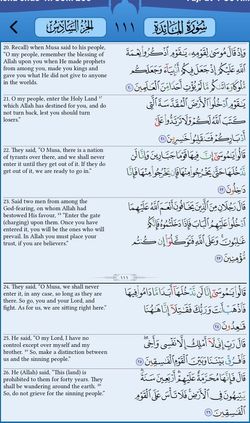 الجزء السادس ١١١ سورة المائدة
20. Recall) when Musa said to his people,
"O my people, remember the blessing of
Allah upon you when He made prophets
from among you, made you kings and
gave you what He did not give to anyone
in the worlds.
وَإِذْ قَالَ مُوسَىٰ لِقَوْمِهِ يَٰقَوْمِ ٱذْكُرُوا۟ نِعْمَةَ
ٱللَّهِ عَلَيْكُمْ إِذْ جَعَلَ فِيكُمْ أَنۢبِيَآءَ وَجَعَلَكُم
مُّلُوكًا وَءَاتَىٰكُم مَّا لَمْ يُؤْتِ أَحَدًا مِّنَ ٱلْعَٰلَمِينَ ٢٠
21. O my people, enter the Holy Land 17
which Allah has destined for you, and do
not turn back, lest you should turn
losers."
يَٰقَوْمِ ٱدْخُلُوا۟ ٱلْأَرْضَ ٱلْمُقَدَّسَةَ ٱلَّتِى
كَتَبَ ٱللَّهُ لَكُمْ وَلَا تَرْتَدُّوا۟ عَلَىٰٓ
أَدْبَارِكُمْ فَتَنقَلِبُوا۟ خَٰسِرِينَ ٢١
22. They said, "O Musa, there is a nation
of tyrants over there, and we shall never
enter it until they get out of it. If they do
get out of it, we are ready to go in."
قَالُوا۟ يَٰمُوسَىٰٓ إِنَّ فِيهَا قَوْمًا جَبَّارِينَ وَإِنَّا لَن
نَّدْخُلَهَا حَتَّىٰ يَخْرُجُوا۟ مِنْهَا فَإِن يَخْرُجُوا۟ مِنْهَا فَإِنَّا
دَٰخِلُونَ ٢٢
23. Said two men from among the
God-fearing, on whom Allah had
bestowed His favour, "Enter the gate
(charging) upon them. Once you have
entered it, you will be the ones who will
prevail. In Allah you must place your
trust, if you are believers."
قَالَ رَجُلَانِ مِنَ ٱلَّذِينَ يَخَافُونَ أَنْعَمَ ٱللَّهُ عَلَيْهِمَا
ٱدْخُلُوا۟ عَلَيْهِمُ ٱلْبَابَ فَإِذَا دَخَلْتُمُوهُ فَإِنَّكُمْ
غَٰلِبُونَ وَعَلَى ٱللَّهِ فَتَوَكَّلُوٓا۟ إِن كُنتُم
مُّؤْمِنِينَ ٢٣
١١١
24. They said, "O Musa, we shall never
enter it, in any case, so long as they are
there. So go, you and your Lord, and
fight. As for us, we are sitting right here."
قَالُوا۟ يَٰمُوسَىٰٓ إِنَّا لَن نَّدْخُلَهَآ أَبَدًا مَّا دَامُوا۟ فِيهَا
فَٱذْهَبْ أَنتَ وَرَبُّكَ فَقَٰتِلَآ إِنَّا هَٰهُنَا
قَٰعِدُونَ ٢٤
25. He said, "O my Lord, I have no
control except over myself and my
brother. So, make a distinction between
us and the sinning people."
قَالَ رَبِّ إِنِّى لَآ أَمْلِكُ إِلَّا نَفْسِى وَأَخِى
فَٱفْرُقْ بَيْنَنَا وَبَيْنَ ٱلْقَوْمِ ٱلْفَٰسِقِينَ ٢٥
26. He (Allah) said, "This (land) is
prohibited to them for forty years. They
shall be wandering around the earth.
So, do not grieve for the sinning people."
قَالَ فَإِنَّهَا مُحَرَّمَةٌ عَلَيْهِمْ أَرْبَعِينَ سَنَةً
يَتِيهُونَ فِى ٱلْأَرْضِ فَلَا تَأْسَ عَلَى ٱلْقَوْمِ
ٱلْفَٰسِقِينَ ٢٦